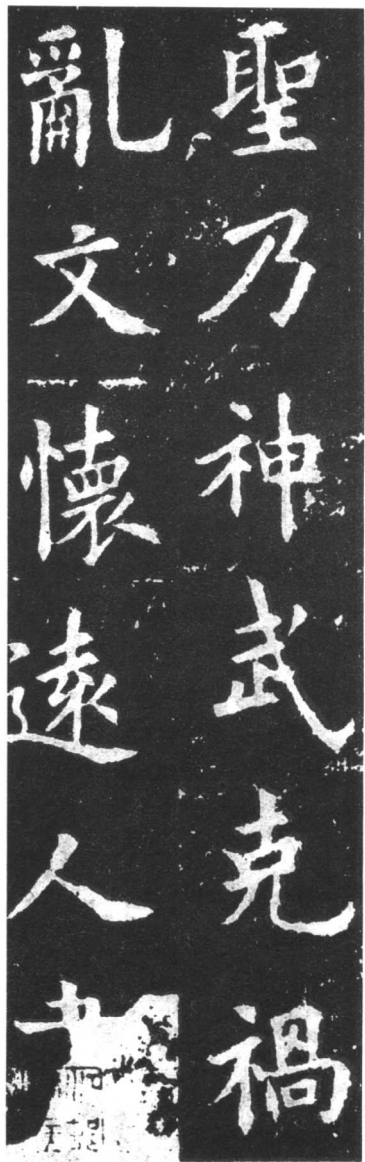 聖乃神武克禍
亂文懷遠人